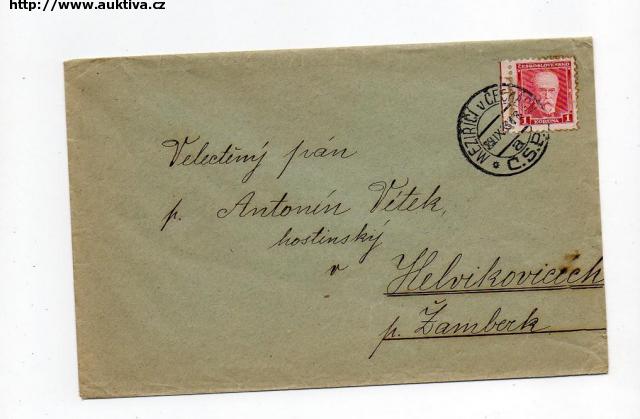 http://www.auktiva.cz
ČESKOSLOVENSKO
1 KORUNA 1
MEZIŘÍČÍ V ČECHÁCH
Č.S.P.
Velectěný pán
p. Antonín Vítek,
hostinský
v Helvikovicích
p. Žamberk